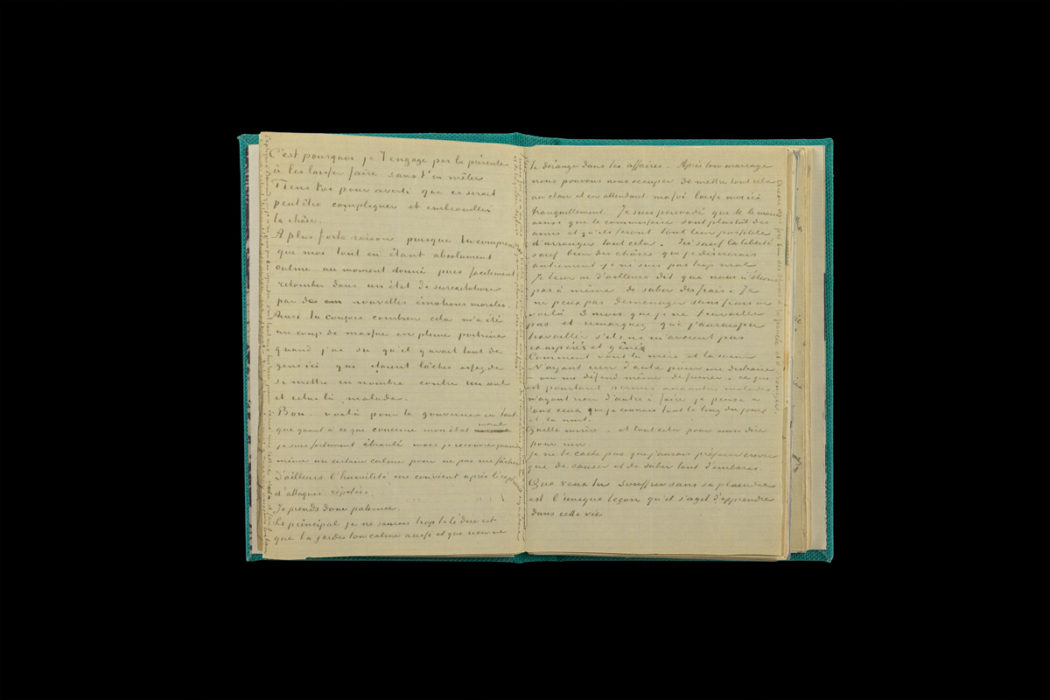 C'est pourquoi je t'engage par la présente
à les laisser faire sans t'en mêler
Tiens toi pour averti que ce serait
peutêtre compliquer et embrouiller
la chose.
A plus forte raison puisque tu comprendras
que moi tout en étant absolument
calme au moment donné puis facilement
retomber dans un état de surexcitation
par de nouvelles émotions morales.
Aussi tu conçois combien cela m'a été
un coup de massue en pleine poitrine
quand j'ai su qu'il y avait tant de
gens ici qui étaient lâches assez de
se mettre en nombre contre un seul
et celui là malade.
Bon. voilà pour ta gouverne en tant
que quant à ce que concerne mon état moral
je suis fortement ébranlé mais je recouvre quand
même un certain calme pour ne pas me fâcher
D'ailleurs l'humilité me convient après l'expérience
d'attaques répétées.
Je prends donc patience.
Le principal je ne saurais trop te le dire est
que tu gardes ton calme aussi et que rien ne
te dérange dans tes affaires. Après ton mariage
nous pouvons nous occuper de mettre tout cela
au clair et en attendant ma foi laisse moi ici
tranquillement. Je suis persuadé que M. le maire
ainsi que le commissaire sont plutôt des
amis et qu'ils feront tout leur possible
d'arranger tout cela. Ici sauf la liberté
sauf bien des choses que je désirerais
autrement je ne suis pas trop mal
Je leur ai d'ailleurs dit que nous n'étions
pas à même de subir des frais. Je
ne peux pas déménager sans frais or
voilà 3 mois que je ne travaille
pas et remarquez que j'aurais pu
travailler s'ils ne m'avaient pas
exaspéré et gêné
Comment vont la mère et la soeur
N'ayant rien d'autre pour me distraire
– on me défend même de fumer – ce que
est pourtant permis aux autres malades
n'ayant rien d'autre à faire je pense à
tous ceux que je connais tout le long du jour
et la nuit.
Quelle misère – et tout cela pour ainsi dire
pour rien
je ne te cache pas que j'aurais préféré crever
que de causer et de subir tant d'embarras.
Que veux tu souffrir sans se plaindre
est l'unique leçon qu'il s'agit d'apprendre
dans cette vie